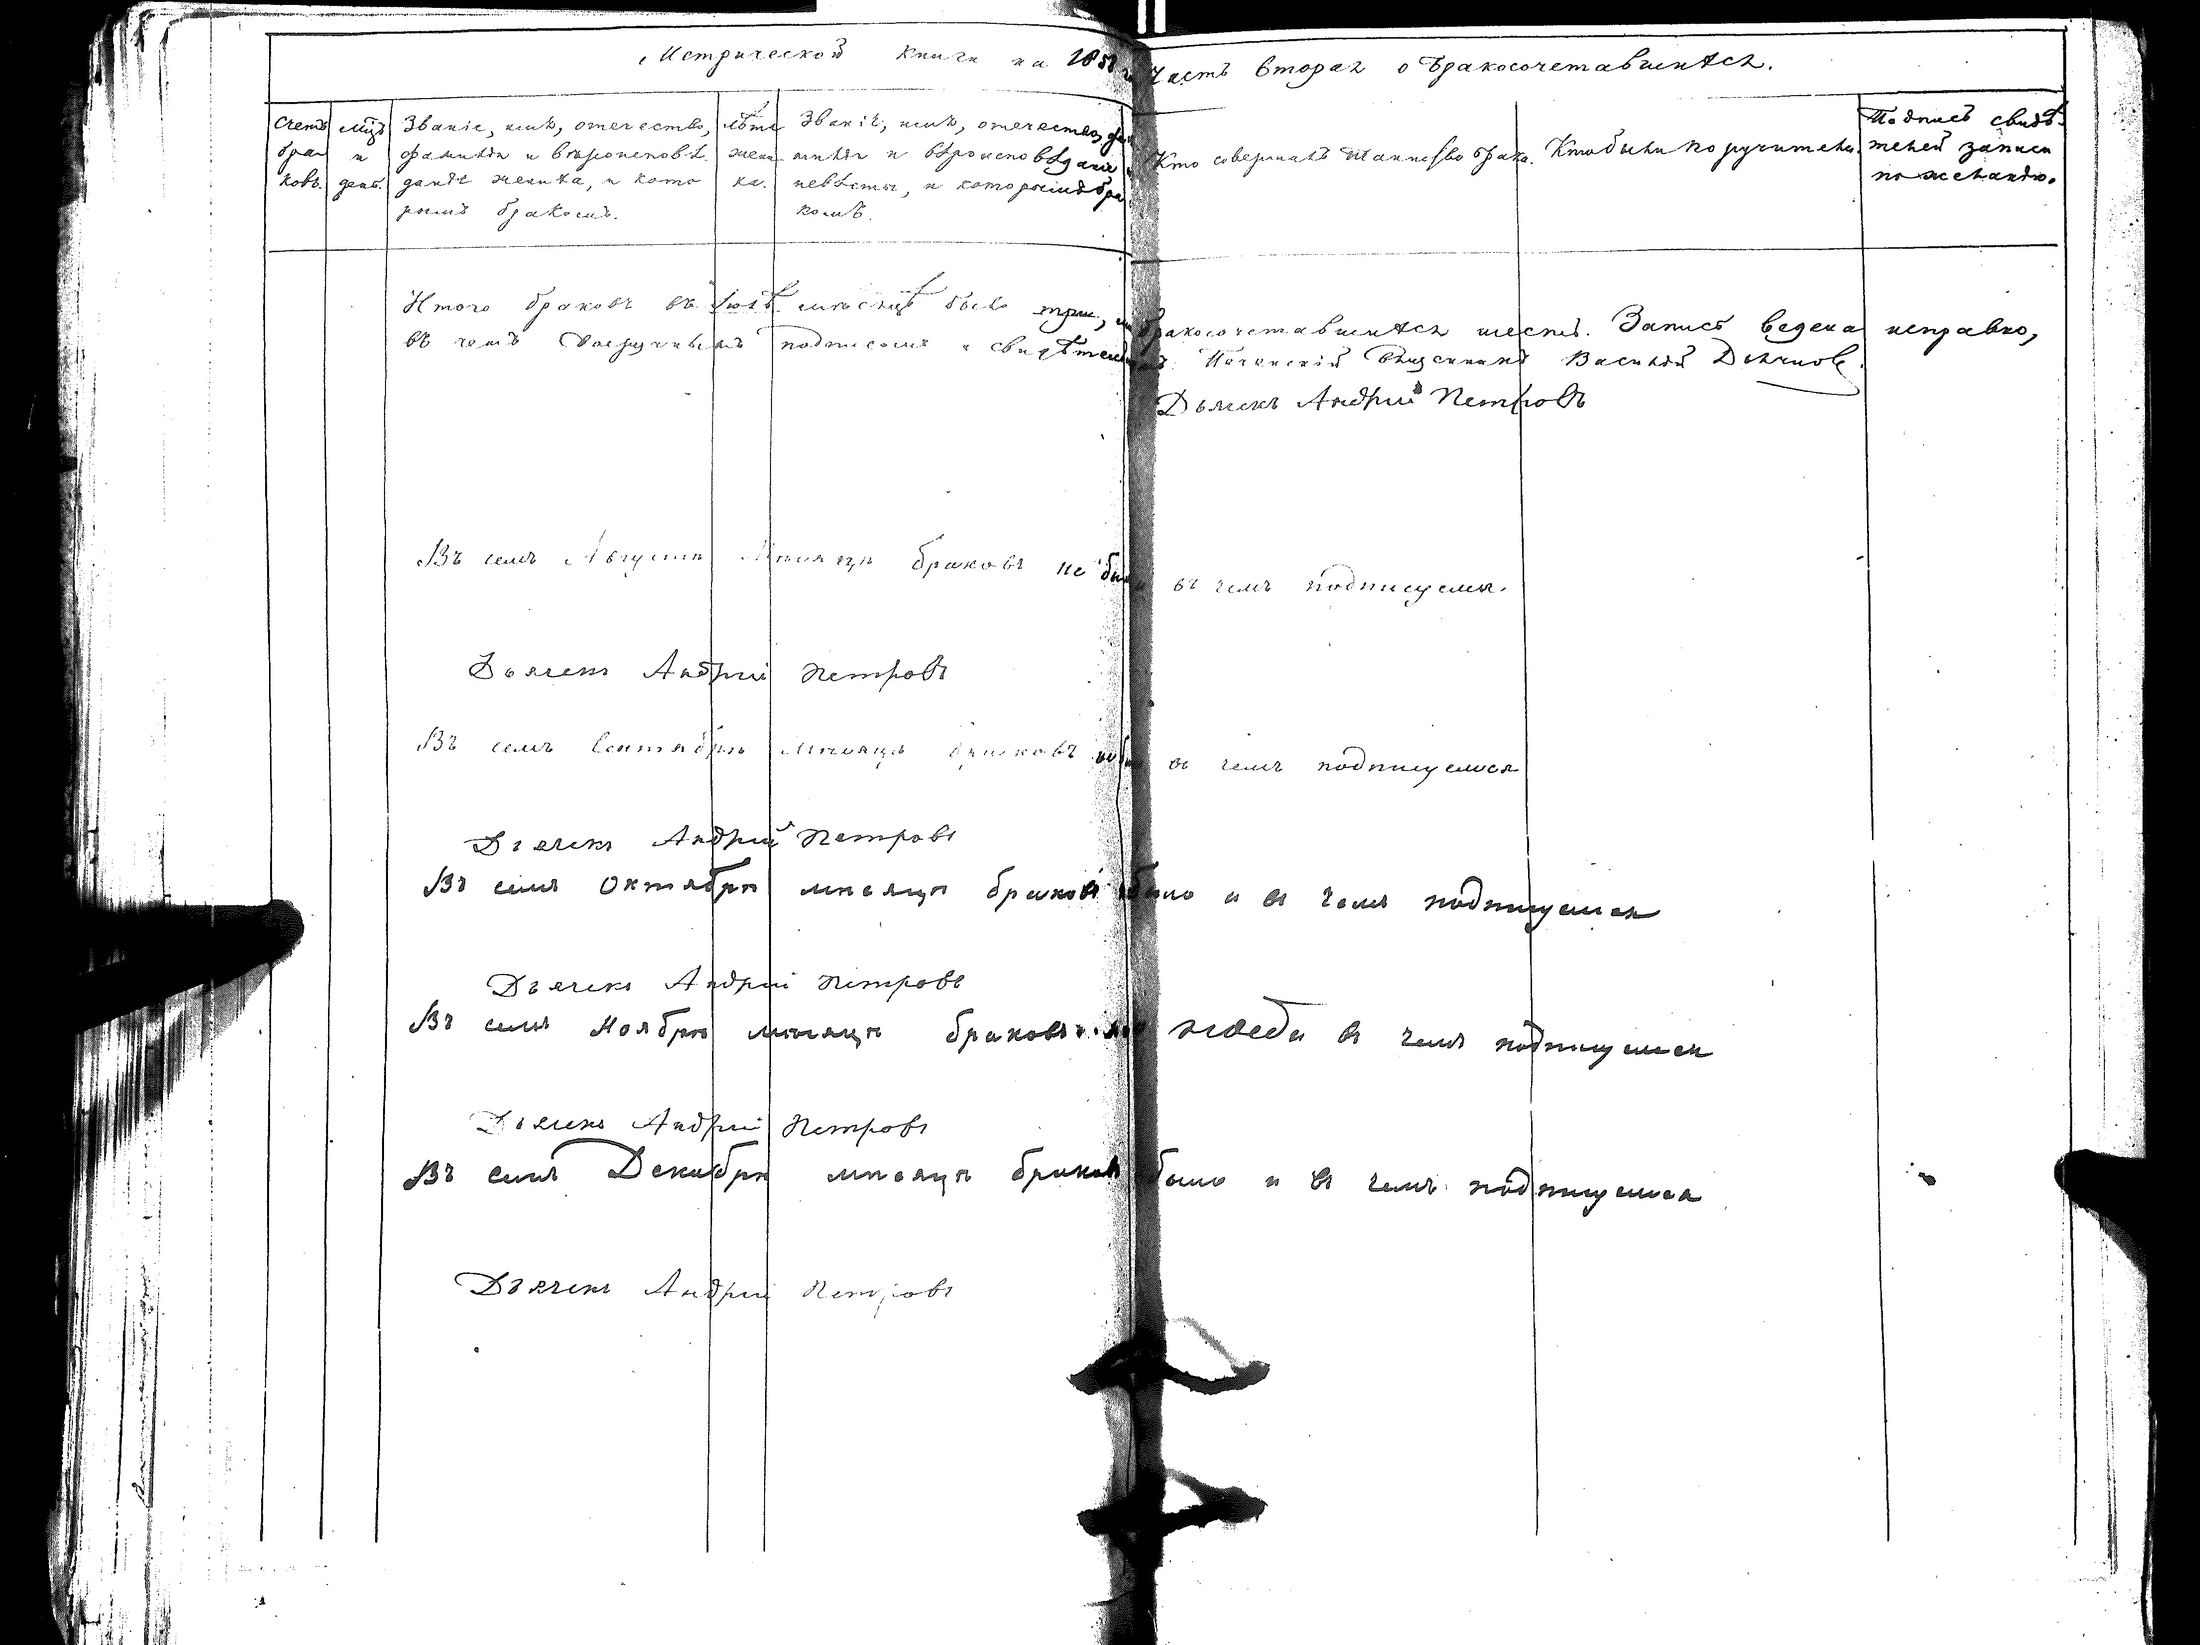 Метрической книги на 185
Часть вторая о бракосочетавшихся.
Счетъ браковъ.
Мцъ и день.
Званіе, имя, отечество,
фамилія и вѣроисповѣ-
даніе жениха, и кото
рымъ бракомъ.
Лѣта жени ха.
Званіе, имя, отечество, фа
милія и вѣроисповѣданіе
невѣсты, и которымъ бра
комъ.
Кто совершалъ таинство брака.
Кто были поручители.
Подпись свидѣ-
телей записи
по желанію.
Итого браковъ въ Іюлѣ мѣсяцѣ было три, бракосочетавшихся шесть. Запись ведена исправно,
въ чемъ подписомъ и свидѣтель Священникъ Василій
Дьячекъ Андрій Петровъ
Въ семъ Августѣ Мѣсяцѣ браковъ не бы въ чемъ подписуемся.
Дьячекъ Андрій Петровъ
Въ семъ Сентябрѣ мѣсяцѣ браковъ въ чемъ подписуемся
Дьячекъ Андрій Петровъ
Въ семъ Октябрѣ мѣсяцѣ браковъ было и въ чемъ подписуемся
Дьячекъ Андрій Петровъ
Въ семъ Ноябрѣ мѣсяцѣ браковъ въ чемъ подписуемся
Дьячекъ Андрій Петровъ
Въ семъ Декабрѣ мѣсяцѣ браковъ было и въ чемъ подписуемся
Дьячекъ Андрій Петровъ